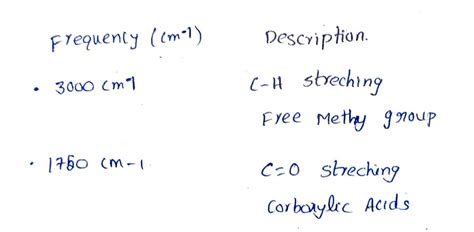 Frequency (cm-1) Description.
• 3000 cm-1 C-H streching
Free Methy group
• 1760 cm-1 C=O streching
Carboxylic Acids